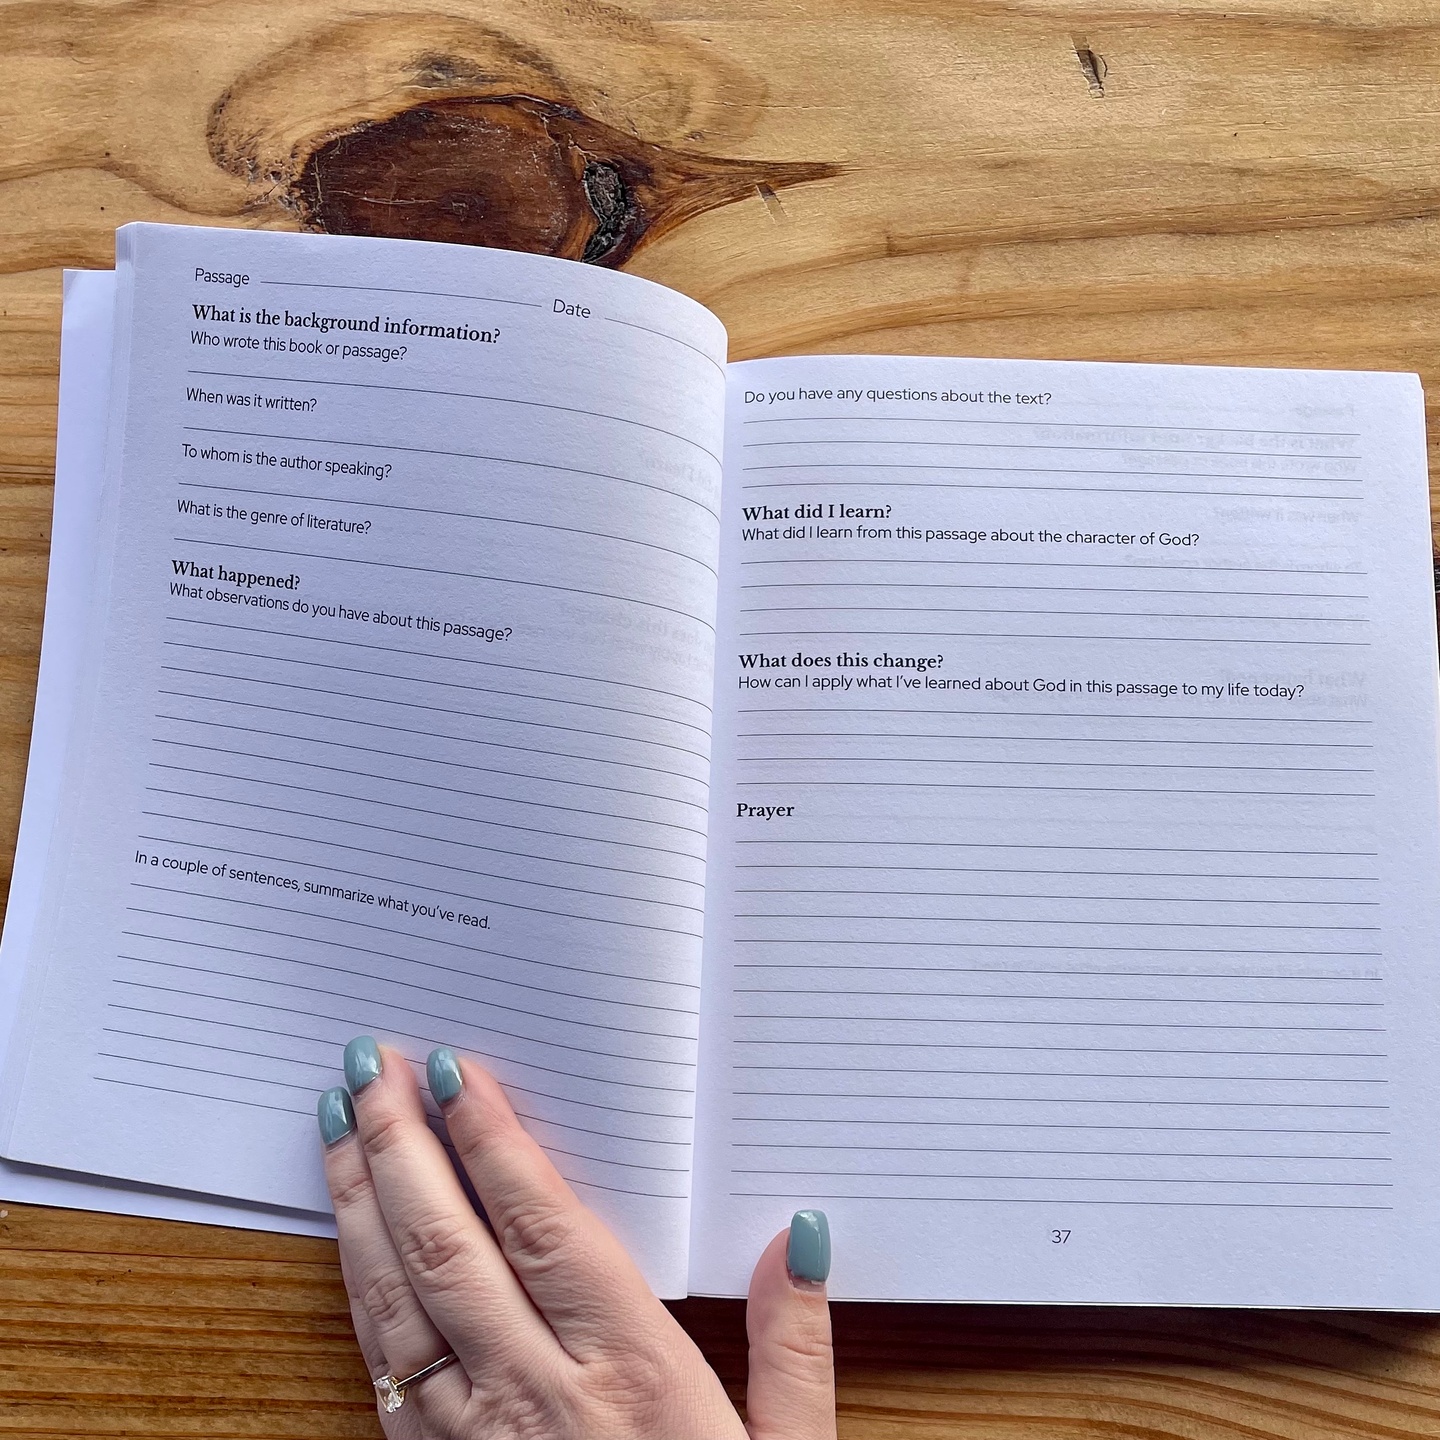 Passage
Date
What is the background information?
Who wrote this book or passage?
When was it written?
To whom is the author speaking?
What is the genre of literature?
What happened?
What observations do you have about this passage?
In a couple of sentences, summarize what you've read.
Do you have any questions about the text?
What did I learn?
What did I learn from this passage about the character of God?
What does this change?
How can I apply what I've learned about God in this passage to my life today?
Prayer
37